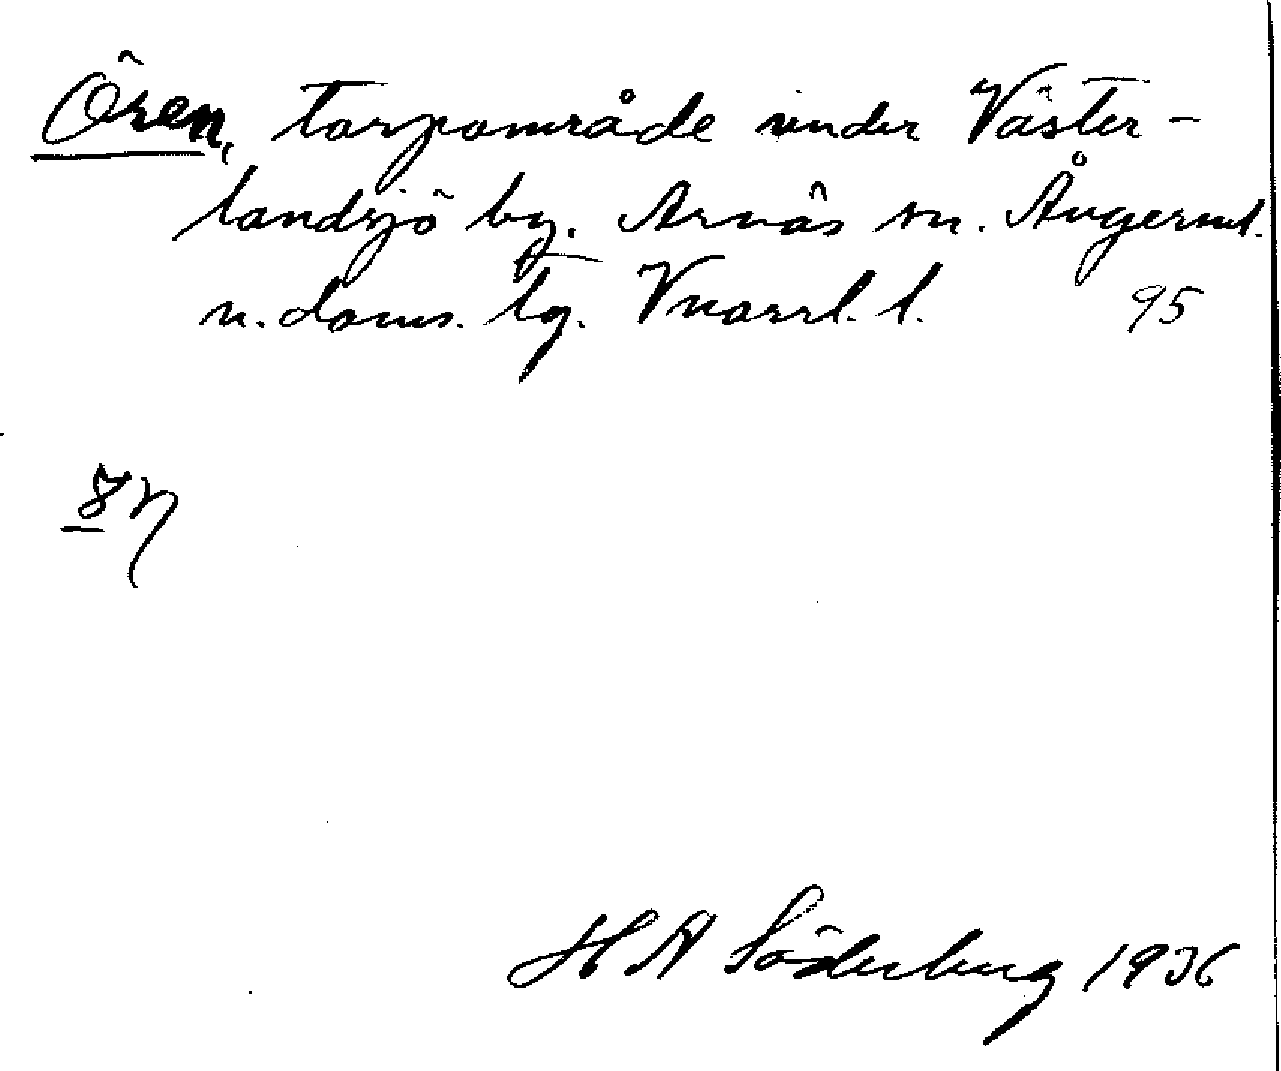 Ören, torpområde under Väster-
landsjö by. Arnäs sn. Ångerml.
n. doms. tg. Vnorrl. l. 95
H A Söderberg 1936